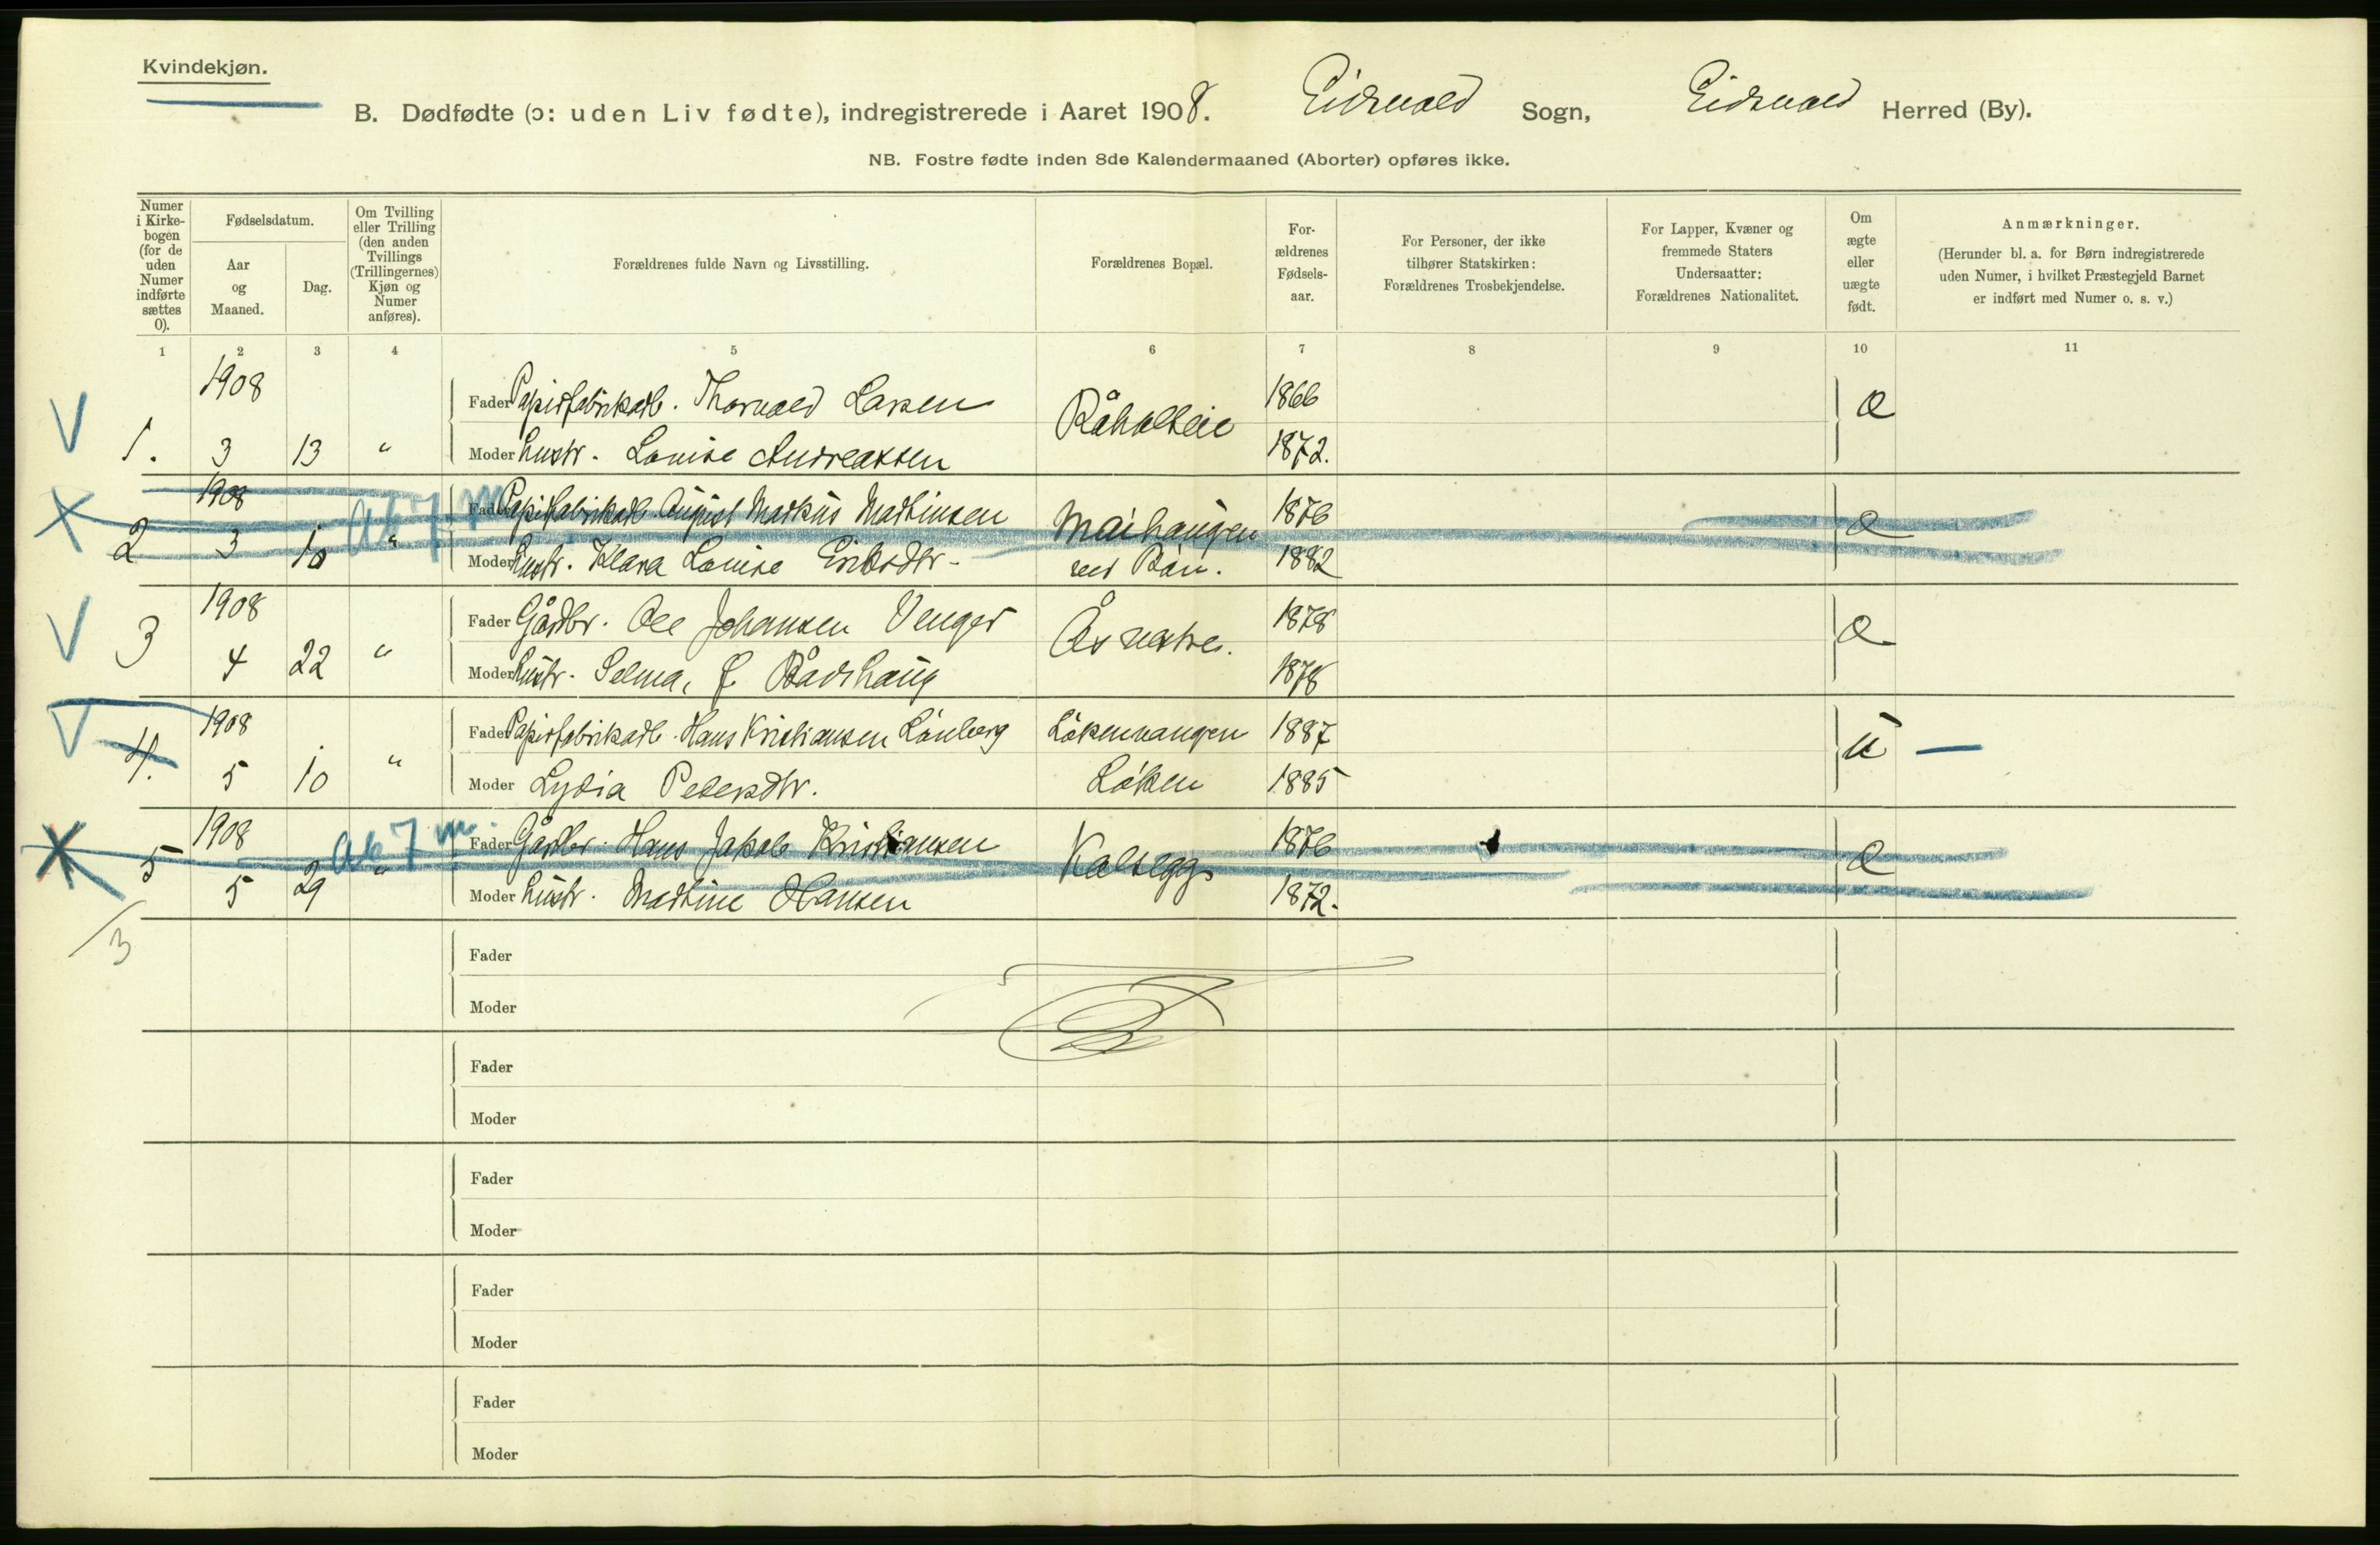 Kvindekjøn.
B. Dødfødte (ɔ: uden Liv fødte), indregistrerede i Aaret 1908. Eidsvold Sogn, Eidsvold Herred (By).
NB. Fostre fødte inden 8de Kalendermaaned (Aborter) opføres ikke.
Numer i Kirke-bogen (for de uden Numer indførte sættes 0).
Fødselsdatum.
Aar og Maaned.
Dag.
Om Tvilling eller Trilling (den anden Tvillings (Trillingernes) Kjøn og Numer anføres).
Forældrenes fulde Navn og Livsstilling.
Forældrenes Bopæl.
For-ældrenes Fødsels-aar.
For Personer, der ikke tilhører Statskirken: Forældrenes Trosbekjendelse.
For Lapper, Kvæner og fremmede Staters Undersaatter: Forældrenes Nationalitet.
Om ægte eller uægte født.
Anmærkninger.
(Herunder bl. a. for Børn indregistrerede uden Numer, i hvilket Præstegjeld Barnet er indført med Numer o. s. v.)
1 2 3 4 5 6 7 8 9 10 11
V 1908 Fader Papirfabrikarb. Thorvald Larsen Råholteie 1866 æ
1. 3 13 " Moder hustr. Louise Andreassen 1872.
1908 Ab 7 m Fader Papirfabrikarb. August Markus Martinsen Maihaugen 1876 æ
2 3 10 " Moder hustr. Klara Louise Eriksdtr. 1882
V 1908 Fader Gårdbr. Ole Johansen Venger Ås vestre. 1878 æ
3 4 22 " Moder hustr. Selma, f. Rådshaug 1878
V 1908 Fader Papirfabrikarb. Hans Kristiansen Lönberg Lökenvangen 1887 u —
4. 5 10 " Moder Lydia Petersdtr. Löken 1885
1908 Ab 7 m. Fader Gårdbr. Hans Jakob Kristiansen Kalsegg 1876 æ
5 5 29 " Moder hustr. Martine Hansen 1872.
/3
Fader
Moder
Fader
Moder
Fader
Moder
Fader
Moder
Fader
Moder